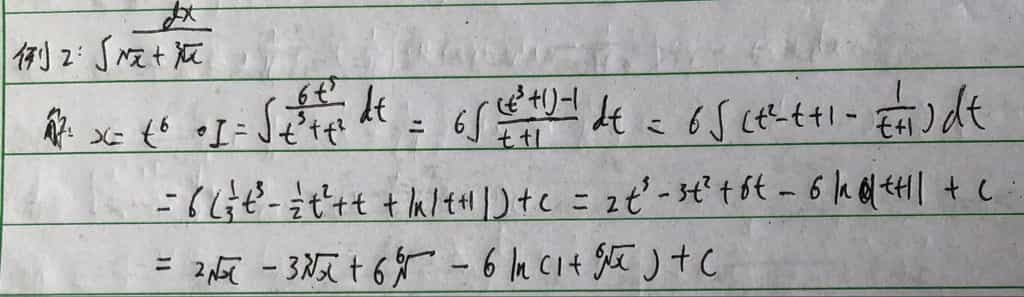 例2: ∫ dx/(√x + ∛x)
解: x = t⁶ ∘ I = ∫ 6t⁵/(t³+t²) dt = 6∫ ((t³+1)-1)/(t+1) dt = 6∫(t²-t+1 - 1/(t+1))dt
= 6(1/3 t³ - 1/2 t² + t + ln|t+1|) + c = 2t³ - 3t² + 6t - 6 ln|t+1| + c
= 2√x - 3∛x + 6⁶√ - 6 ln(1+⁶√x) + C